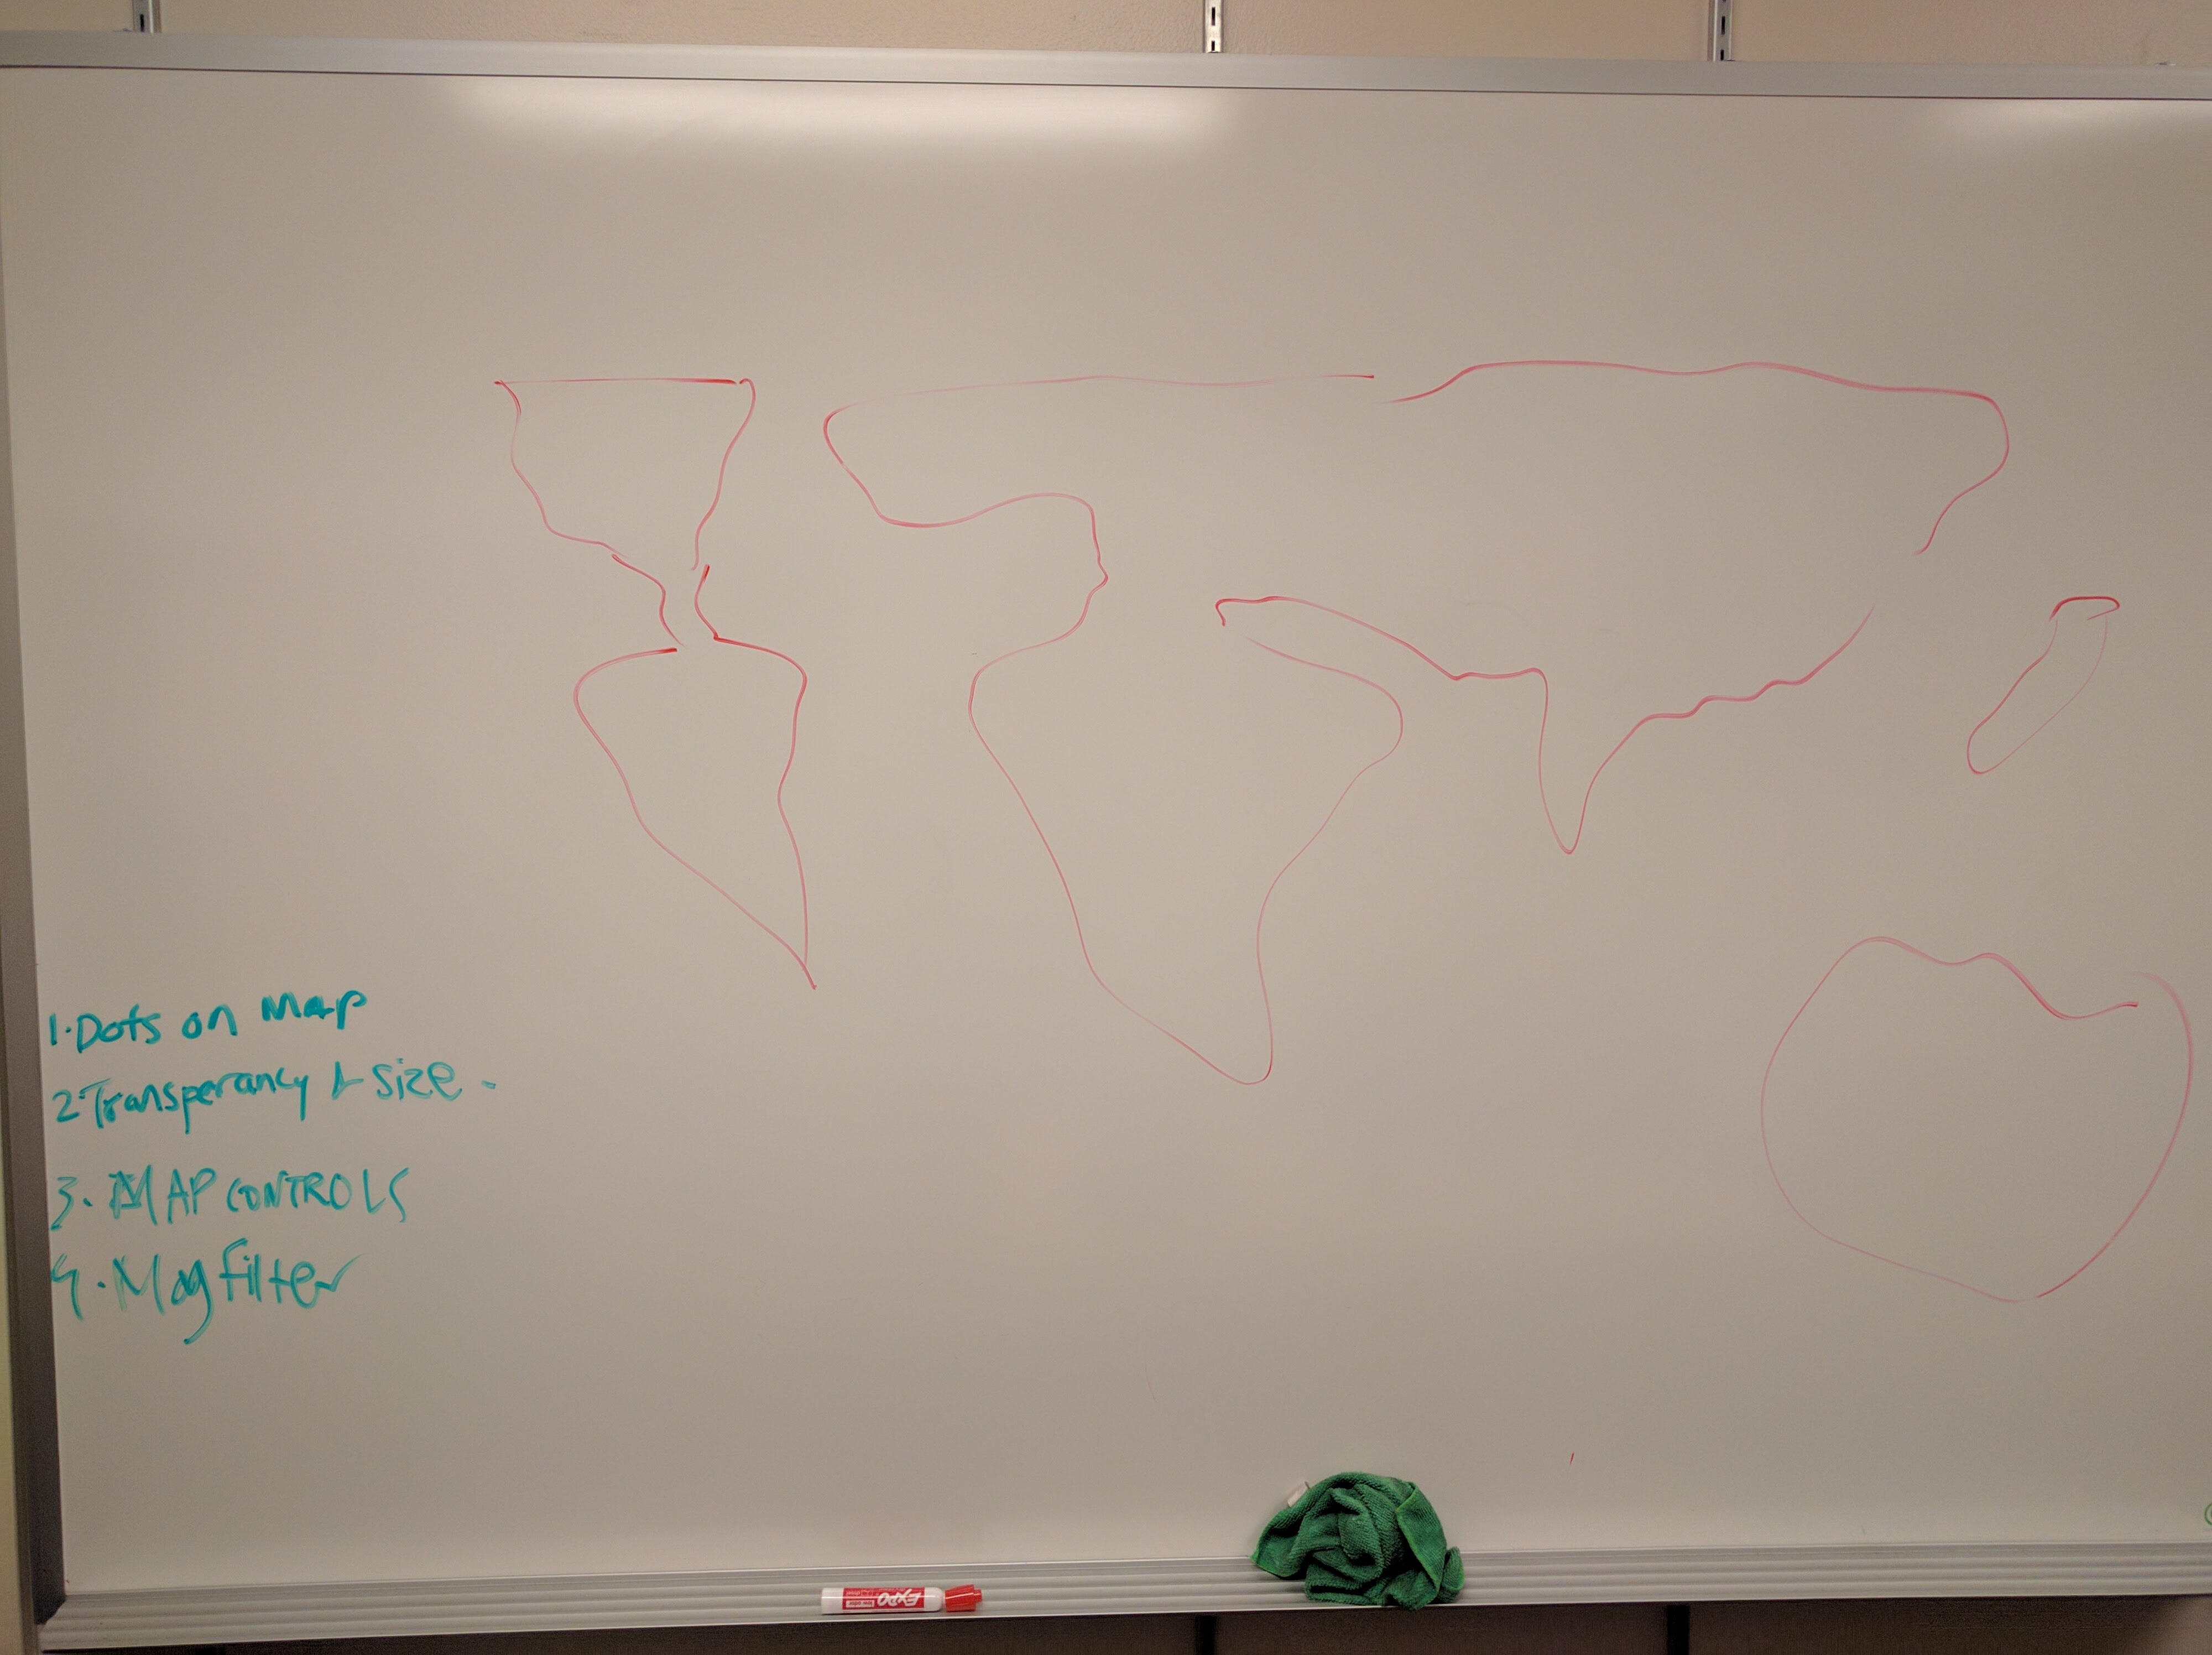 1. Dots on Map
2. Transperancy & size.
3. MAP CONTROLS
4. Mag filter
EXPO